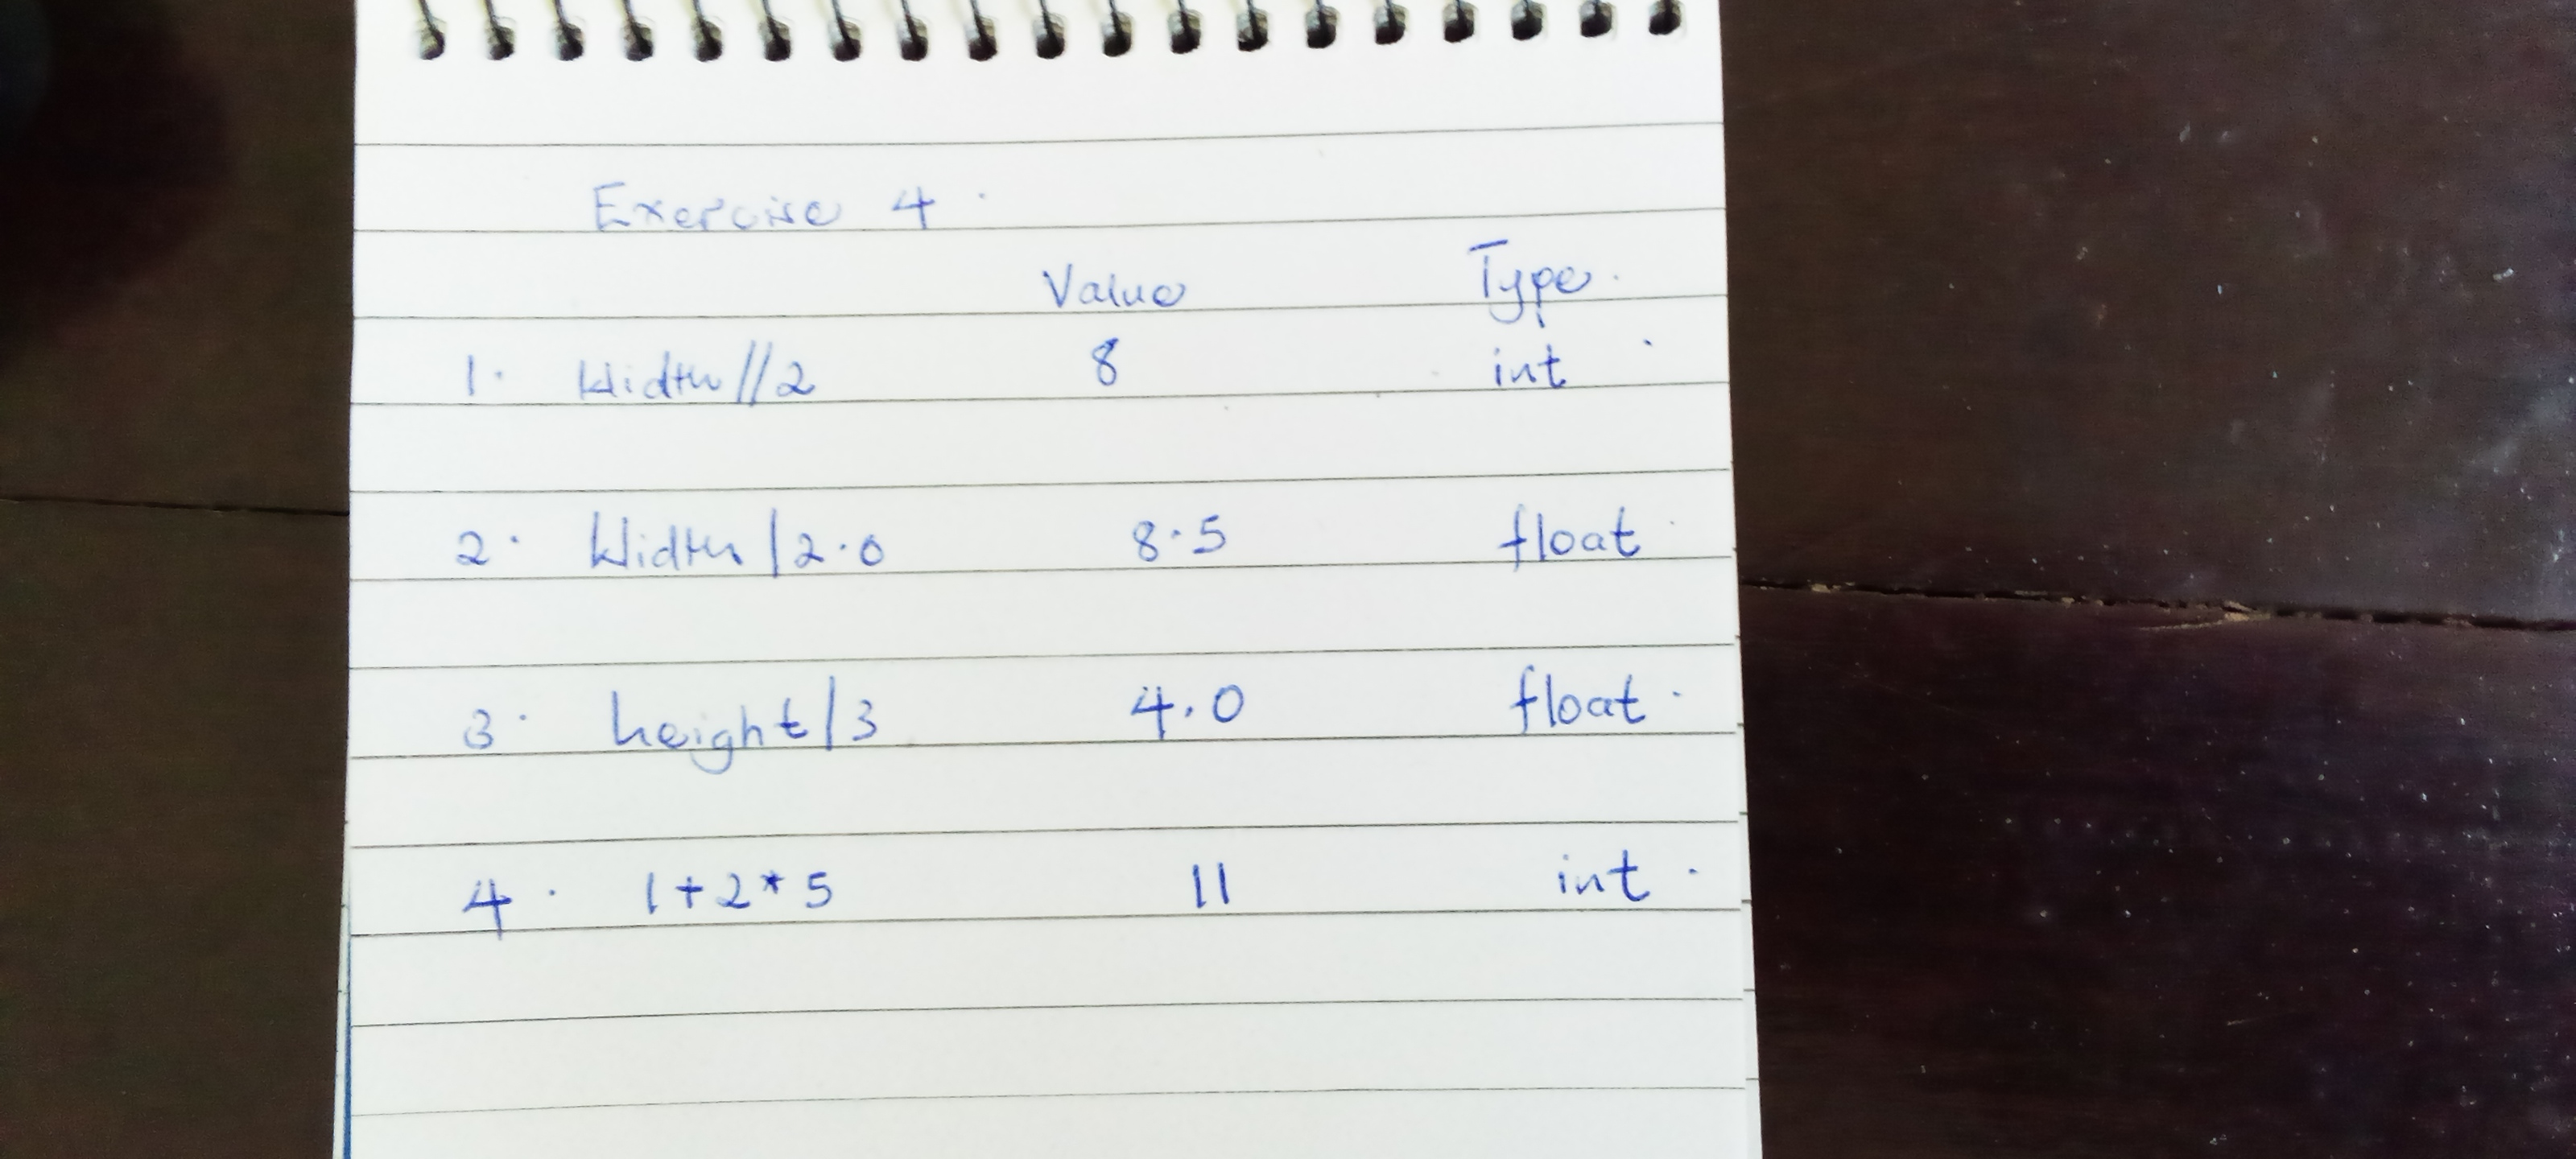 Exercise 4.
Value Type.
1. Width//2 8 int
2. Width/2.0 8.5 float
3. height/3 4.0 float.
4. 1+2*5 11 int.